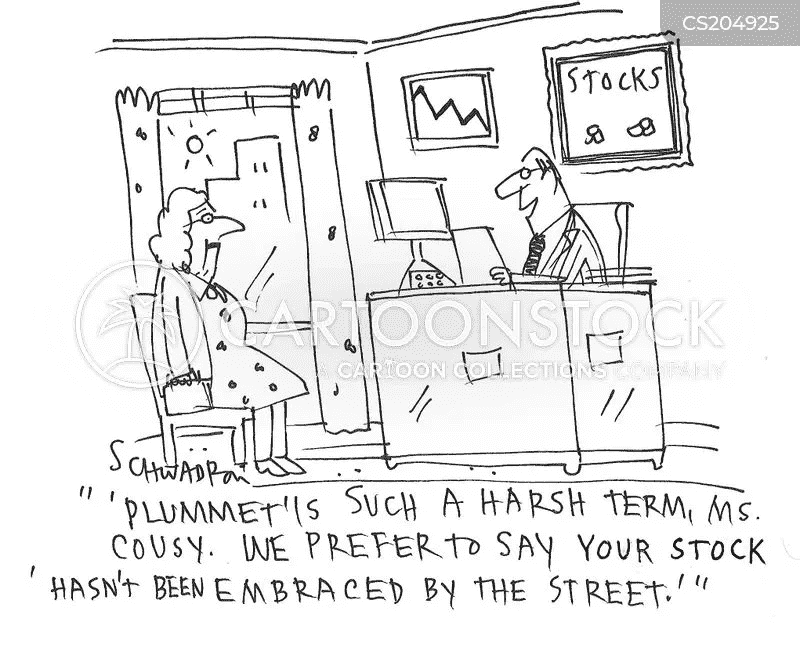 CS204925
STOCKS
CARTOONSTOCK
A CARTOON COLLECTIONS COMPANY
SCHWADRON
"'PLUMMET' IS SUCH A HARSH TERM, MS.
COUSY. WE PREFER TO SAY YOUR STOCK
'HASN'T BEEN EMBRACED BY THE STREET.'"